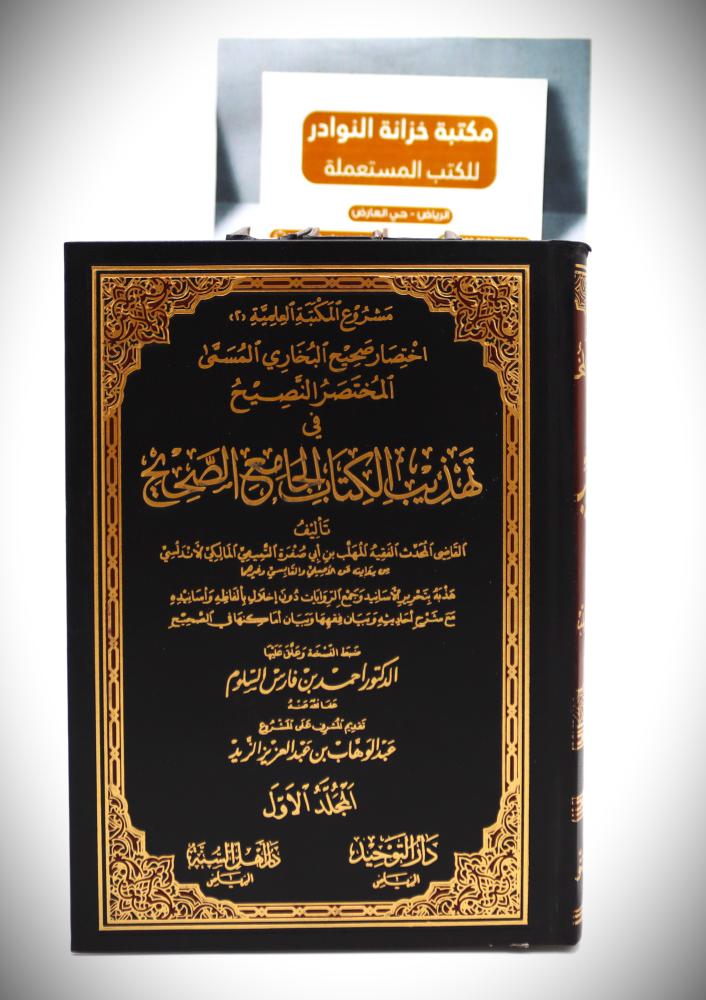 مكتبة خزانة النوادر
للكتب المستعملة
الرياض - حي العارض
مشروع المكتبة العلمية (٢)
اختصار صحيح البخاري المسمى
المختصر النصيح
في
تهذيب الكتاب الجامع الصحيح
تأليف
القاضي المحدث الفقيه المهلب بن أبي صفرة التميمي المالكي الأندلسي
من روايته عن الأصيلي والقابسي وغيرهما
هذبه بتحرير الأسانيد وجمع الروايات دون إخلال بألفاظه وأسانيده
مع شرح أحاديثه وبيان فقهها وبيان أماكنها في الصحيح
ضبط النسخة وعلق عليها
الدكتور أحمد بن فارس السلوم
عفا الله عنه
تقديم المشرف على المشروع
عبد الوهاب بن عبد العزيز الزيد
المجلد الأول
دار التوحيد
الرياض
دار أهل السنة
الرياض